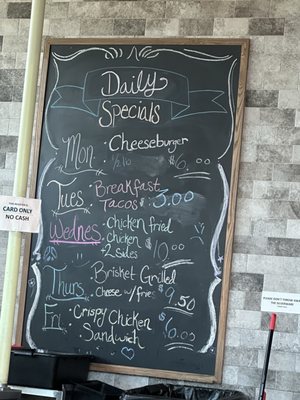 Daily
Specials
Mon • Cheeseburger
$6.00
Tues • Breakfast
Tacos $3.00
Wednes • Chicken fried
Chicken
2 sides $10.00
Thurs • Brisket Grilled
Cheese w/ fries
7.50
Fri • Crispy Chicken
Sandwich $6.00
CARD ONLY
NO CASH
PLEASE DON'T THROW
THE SILVERWARE